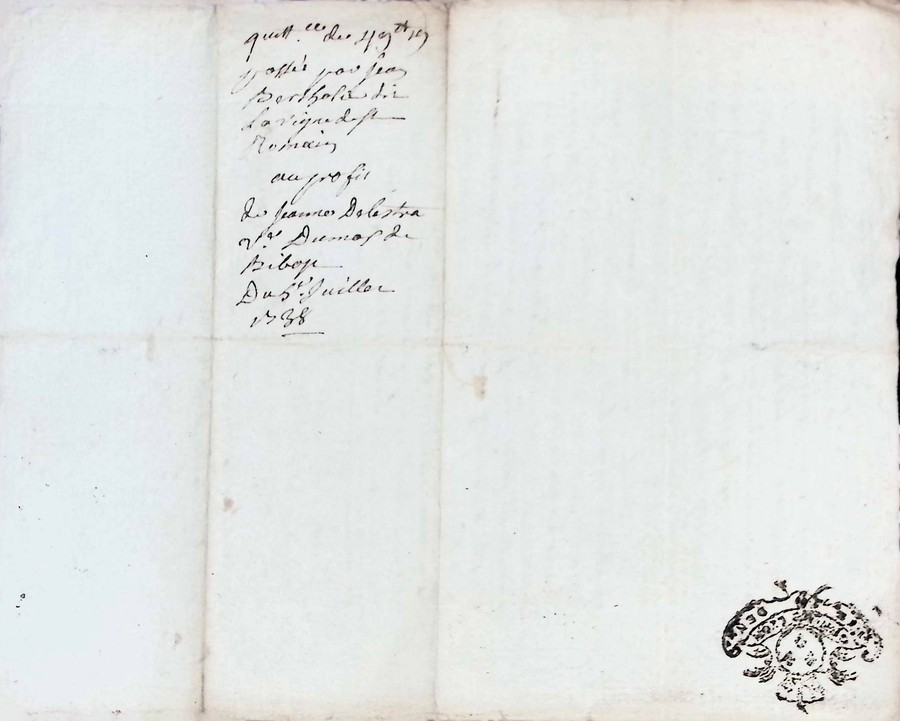 quitt.ce de 49 tt 19
passée par Jean
Bertholé dit
La vigne de st
Romain
au profit
de Jeanne Delestra
v.ve Dumas de
Ribop
Du 5e Juillet
1738